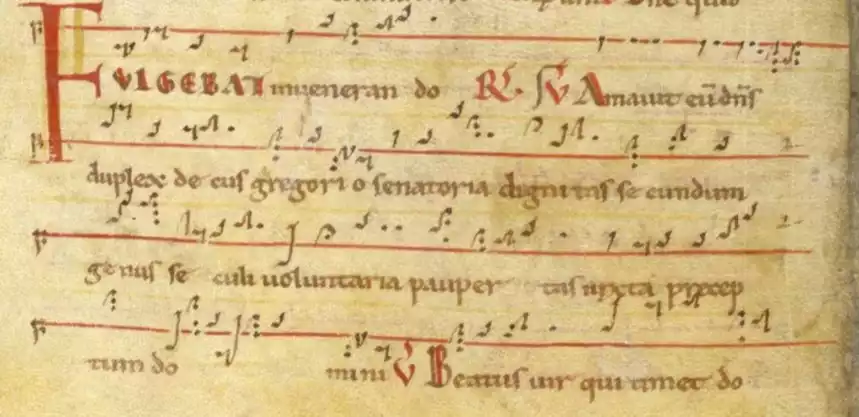 FVLGEBAT in ueneran do R̸. V̸ Amauit eū dn̄s
duplex de cus gregori o senatoria digni tas se cundum
genus se culi uoluntaria pauper tas iuxta precep
tum do mini V̸ Beatus uir qui timet do